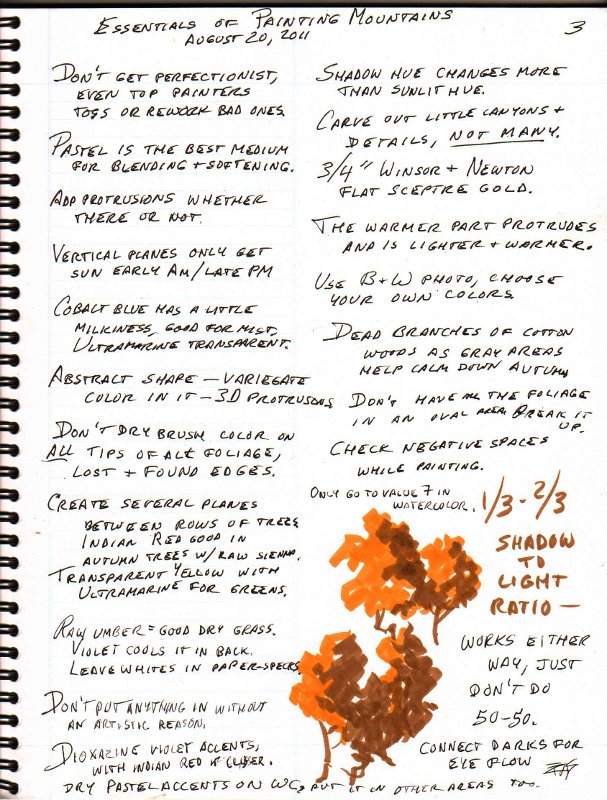 ESSENTIALS OF PAINTING MOUNTAINS
AUGUST 20, 2011
3
DON'T GET PERFECTIONIST,
EVEN TOP PAINTERS
TOSS OR REWORK BAD ONES.
PASTEL IS THE BEST MEDIUM
FOR BLENDING + SOFTENING.
ADD PROTRUSIONS WHETHER
THERE OR NOT.
VERTICAL PLANES ONLY GET
SUN EARLY AM/LATE PM
COBALT BLUE HAS A LITTLE
MILKINESS, GOOD FOR MIST,
ULTRAMARINE TRANSPARENT.
ABSTRACT SHAPE – VARIEGATE
COLOR IN IT – 3D PROTRUSIONS
DON'T DRY BRUSH COLOR ON
ALL TIPS OF ALL FOLIAGE,
LOST + FOUND EDGES.
CREATE SEVERAL PLANES
BETWEEN ROWS OF TREES
INDIAN RED GOOD IN
AUTUMN TREES W/ RAW SIENNA.
TRANSPARENT YELLOW WITH
ULTRAMARINE FOR GREENS.
RAW UMBER = GOOD DRY GRASS.
VIOLET COOLS IT IN BACK.
LEAVE WHITES IN PAPER-SPECKS
DON'T PUT ANYTHING IN WITHOUT
AN ARTISTIC REASON.
DIOXAZINE VIOLET ACCENTS,
WITH INDIAN RED IF CLOSER.
DRY PASTEL ACCENTS ON WC, PUT IT IN OTHER AREAS TOO.
SHADOW HUE CHANGES MORE
THAN SUNLIT HUE.
CARVE OUT LITTLE CANYONS +
DETAILS, NOT MANY.
3/4" WINSOR + NEWTON
FLAT SCEPTRE GOLD.
THE WARMER PART PROTRUDES
AND IS LIGHTER + WARMER.
USE B+W PHOTO, CHOOSE
YOUR OWN COLORS
DEAD BRANCHES OF COTTON
WOODS AS GRAY AREAS
HELP CALM DOWN AUTUMN
DON'T HAVE ALL THE FOLIAGE
IN AN OVAL AREA BREAK IT
UP.
CHECK NEGATIVE SPACES
WHILE PAINTING.
ONLY GO TO VALUE 7 IN
WATERCOLOR.
1/3 - 2/3
SHADOW
TO
LIGHT
RATIO –
WORKS EITHER
WAY, JUST
DON'T DO
50-50.
CONNECT DARKS FOR
EYE FLOW